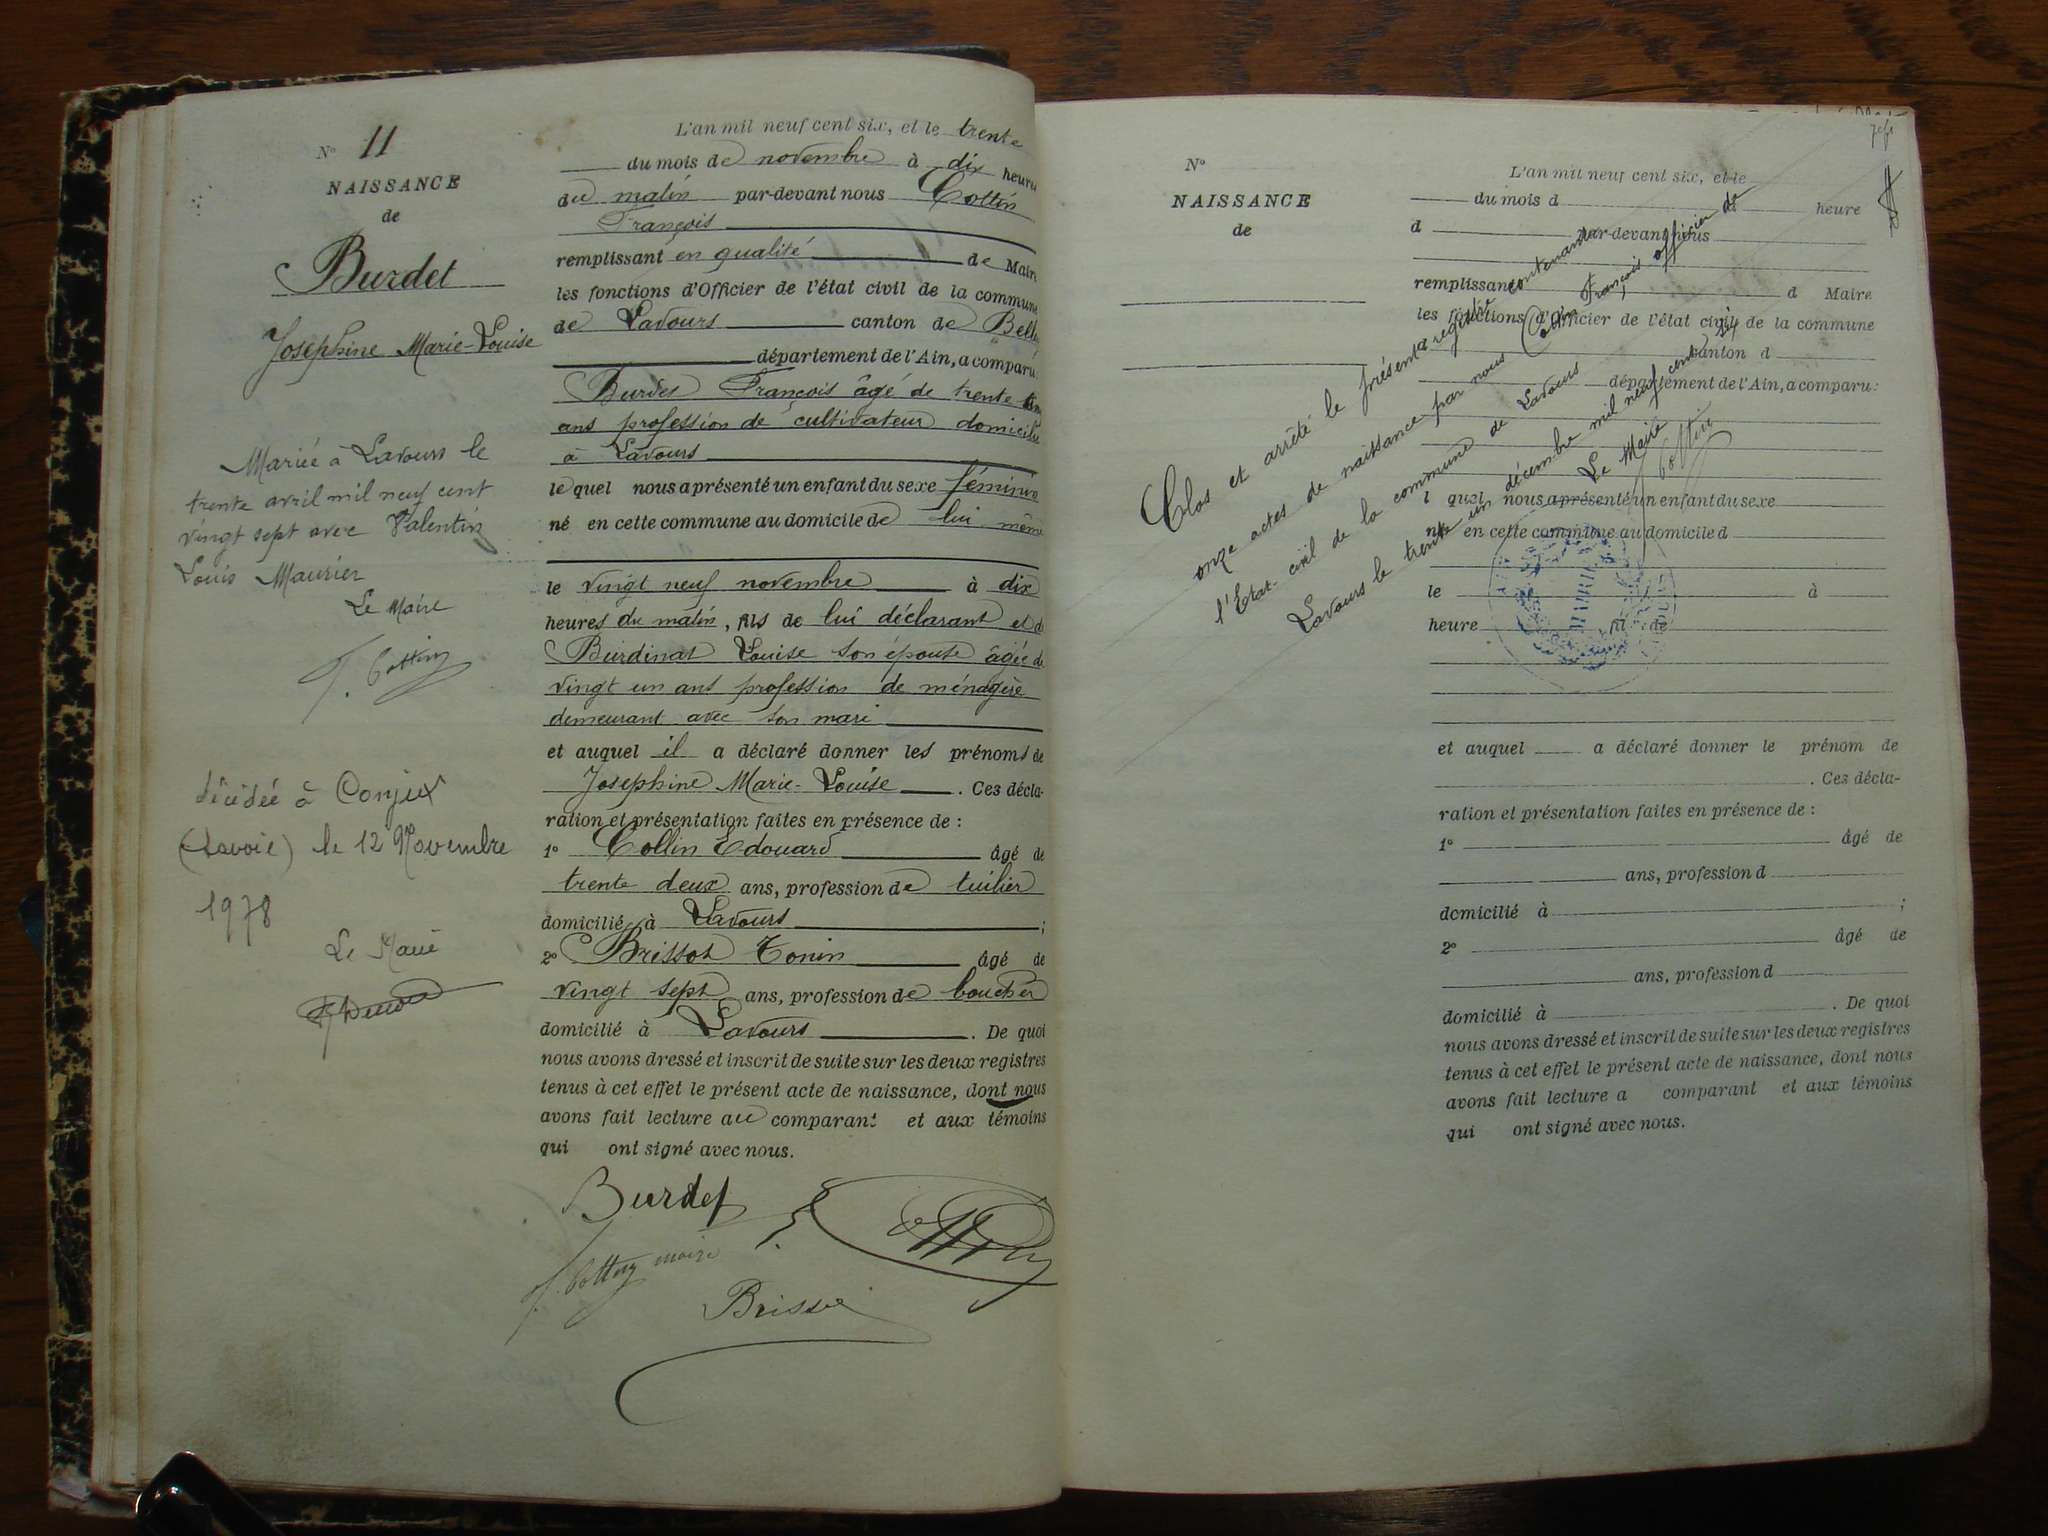 N° 11
NAISSANCE
de
Burdet
Joséphine Marie-Louise
Mariée à Lavours le
trente avril mil neuf cent
vingt sept avec Valentin
Louis Maurier
Le Maire
F. Cottin
décédée à Conjux
(Savoie) le 12 Novembre
1978
Le Maire
L'an mil neuf cent six, et le trente
du mois de novembre à dix heures
du matin par-devant nous Cottin
François
remplissant en qualité de Maire
les fonctions d'Officier de l'état civil de la commune
de Lavours canton de Belle
département de l'Ain, a comparu:
Burdet François âgé de trente
ans profession de cultivateur domicilié
à Lavours
lequel nous a présenté un enfant du sexe féminin
né en cette commune au domicile de lui même
le vingt neuf novembre à dix
heures du matin, fils de lui déclarant et de
Burdinat Louise son épouse âgée de
vingt un ans profession de ménagère
demeurant avec son mari
et auquel il a déclaré donner les prénoms de
Josephine Marie-Louise. Ces décla-
ration et présentation faites en présence de :
1° Collin Edouard âgé de
trente deux ans, profession de tuilier
domicilié à Lavours ;
2° Brissot Tonin âgé de
vingt sept ans, profession de boucher
domicilié à Lavours. De quoi
nous avons dressé et inscrit de suite sur les deux registres
tenus à cet effet le présent acte de naissance, dont nous
avons fait lecture au comparant et aux témoins
qui ont signé avec nous.
Burdet
F. Cottin maire
N°
NAISSANCE
de
L'an mil neuf cent six, et le
du mois d heure
d par-devant nous
remplissant d Maire
les fonctions d'Officier de l'état civil de la commune
canton d
département de l'Ain, a comparu:
l quel nous a présenté un enfant du sexe
né en cette commune au domicile d
le à
heure fil de
et auquel a déclaré donner le prénom de
. Ces décla-
ration et présentation faites en présence de :
1° âgé de
ans, profession d
domicilié à ;
2° âgé de
ans, profession d
domicilié à . De quoi
nous avons dressé et inscrit de suite sur les deux registres
tenus à cet effet le présent acte de naissance, dont nous
avons fait lecture a comparant et aux témoins
qui ont signé avec nous.
Clos et arrêté le présent registre contenant
onze actes de naissance par nous Cottin François officier de
l'Etat-civil de la commune de Lavours
Lavours le trente un décembre mil neuf cent six
Le Maire
Cottin
MAIRIE